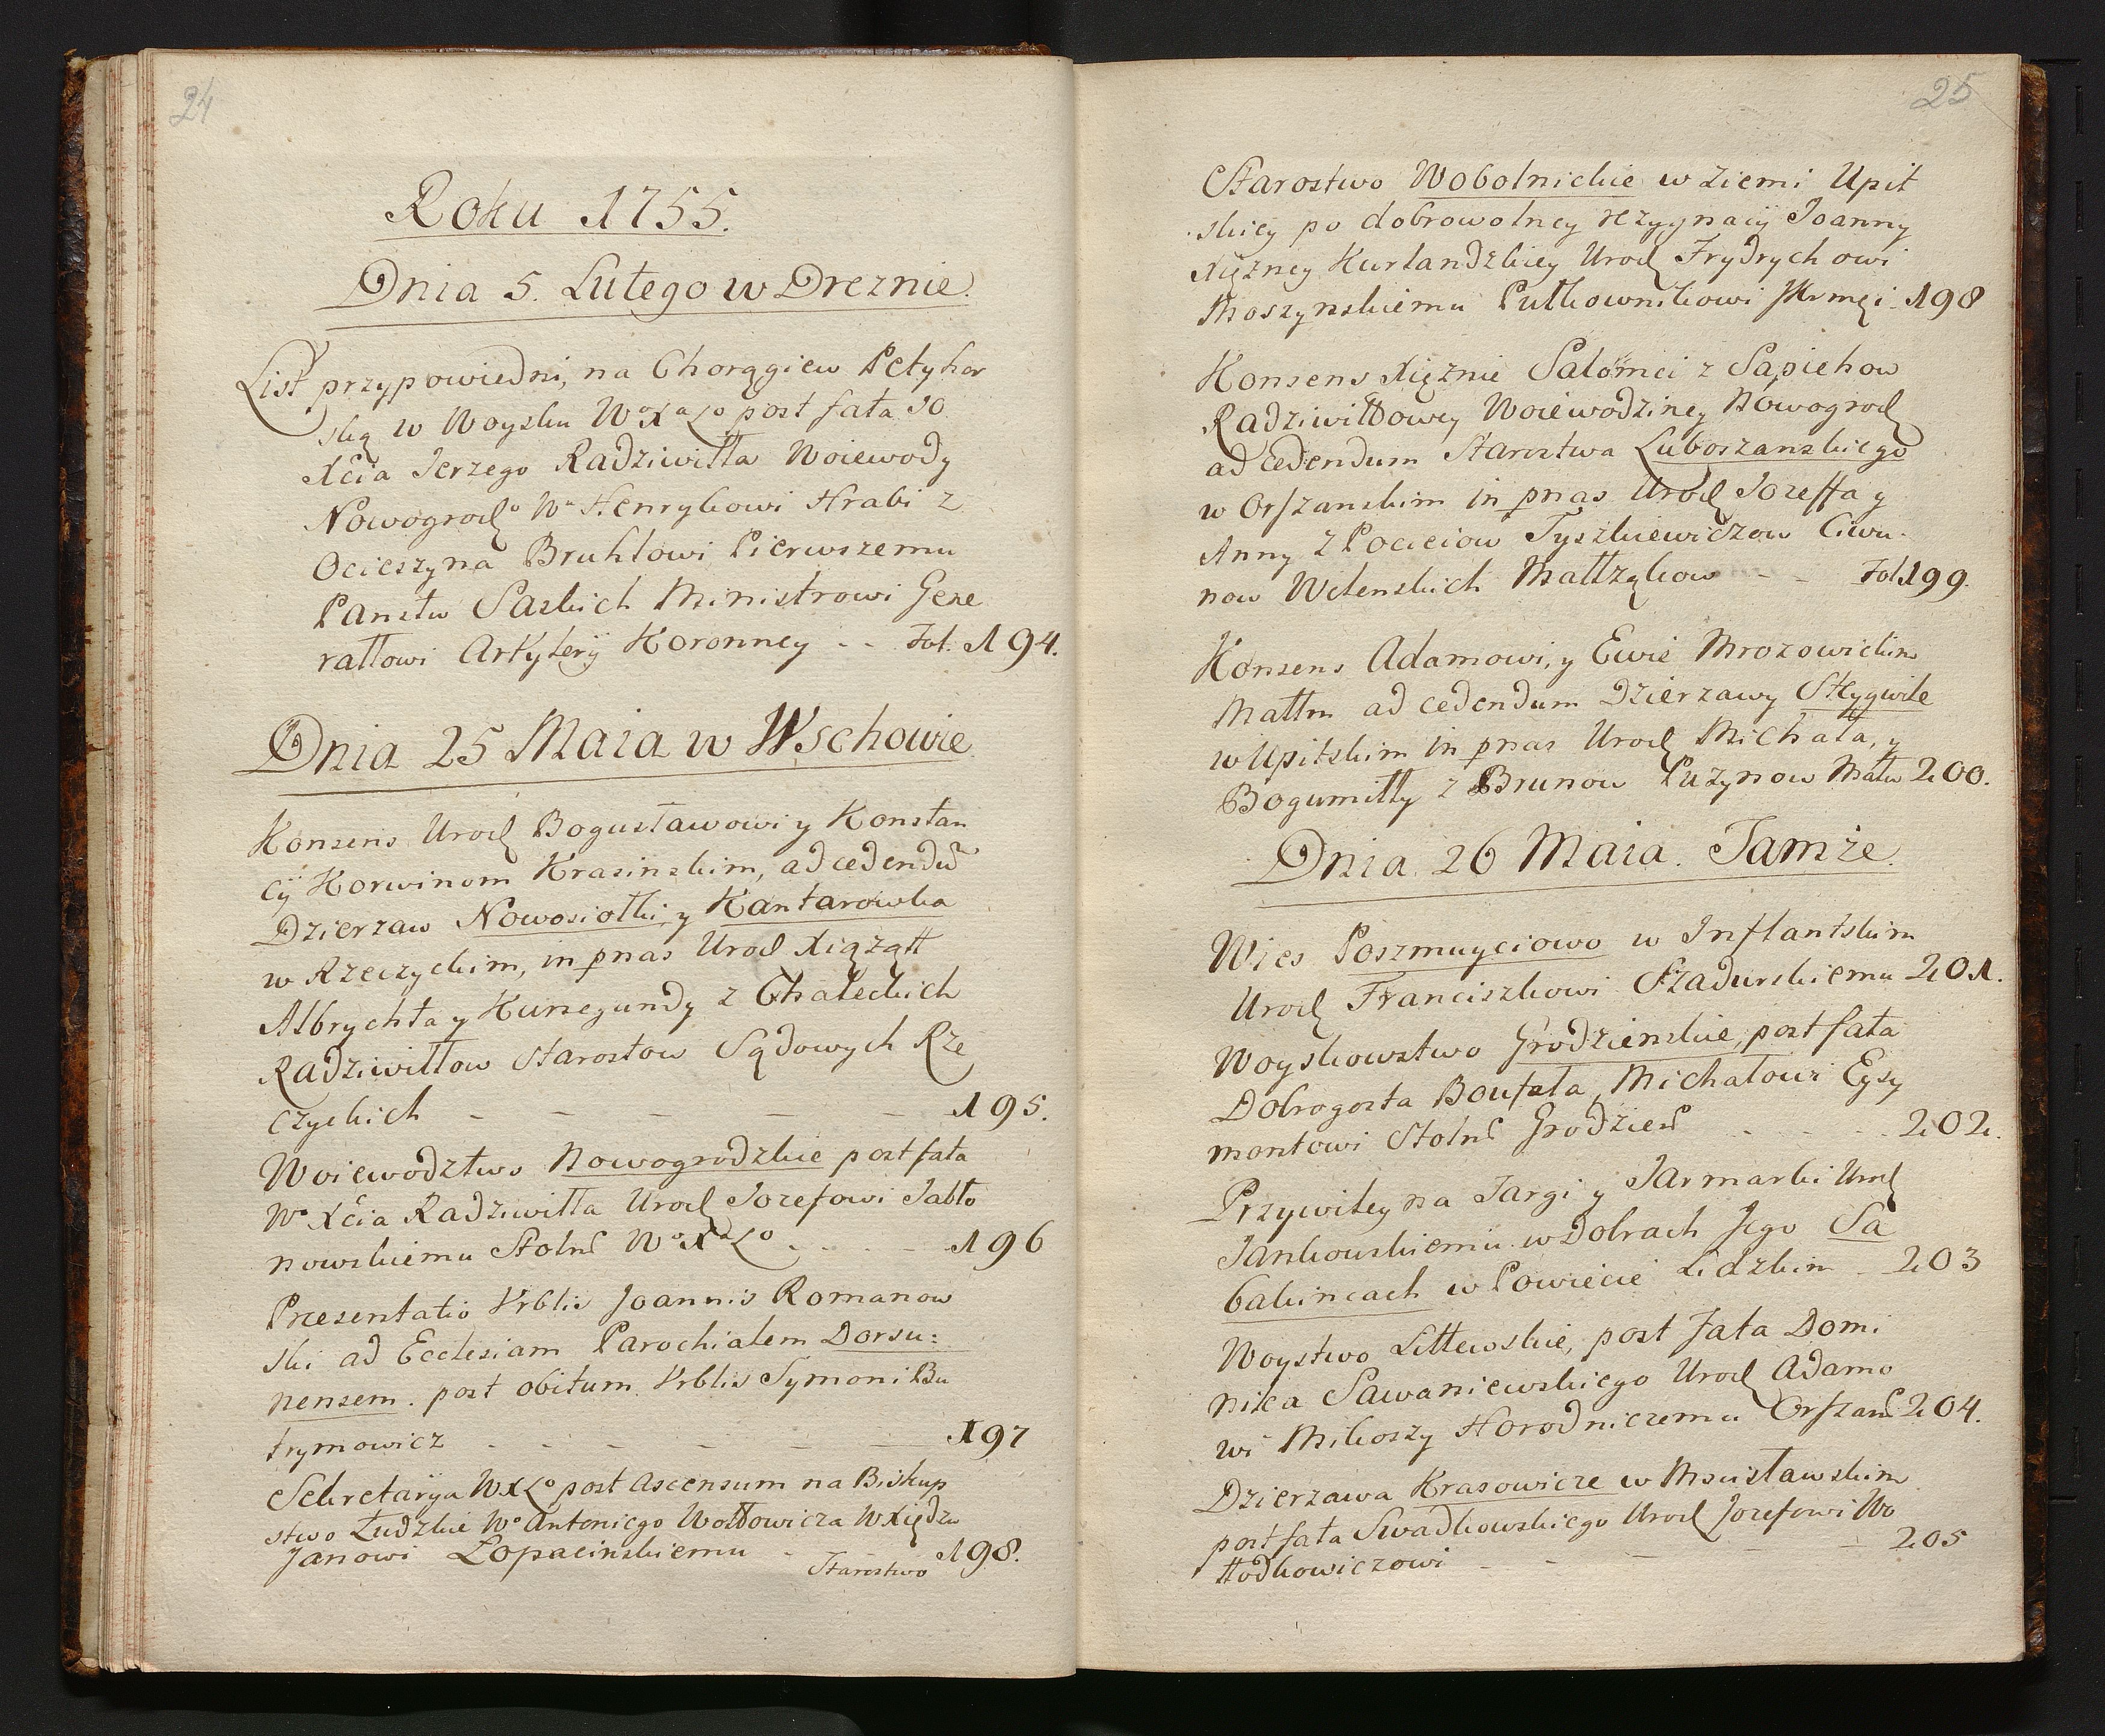 24
Roku 1755.
Dnia 5. Lutego w Dreznie.
List przypowiedni, na Chorągiew Petyhor
ską w Woysku WoXaLo post fata JO
Xcia Jerzego Radziwiłła Woiewody
Nowogrodo Wu Henrykowi Hrabi z
Ocieszyna Bruhlowi Pierwszemu
Panstw Saskich Ministrowi Gene
rałłowi Artyleryi Koronney - - Fol. 194.
Dnia 25 Maia w Wschowie
Konsens Urod Bogusławowi y Konstan
cyi Korwinom Krasinskim, ad cedendū
Dzierzaw Nowosiołki, y Kantarowka
w Rzeczyckim, in pnas Urod Xiążątt
Albrychta y Kunegundy z Chaleckich
Radziwiłłow Starostow Sądowych Rze
czyckich - - - - - 195.
Woiewodztwo Nowogrodzkie post fata
Wo Xcia Radziwiłła Urod Jozefowi Jabło
nowskiemu Stoln WoXaLo - - - 196
Praesentatio Vrblis Joannis Romanow
ski ad Ecclesiam Parochialem Dorsu:
nensem. post obitum. Vrblis Symoni Bu
trymowicz - - - - - - 197
Sekretarya WXLo post ascensum na Biskup
stwo Żudzkie Wo Antoniego Wołłowicza WXiędzu
Janowi Łopacinskiemu - - 198.
Starostwo
25
Starostwo Wobolnickie w Ziemi Upit
skiey po dobrowolney rezygnacyi Joanny
Xiężney Kurlandzkiey Urod Frydrychowi
Moszynskiemu Pułkownikowi JKrmęi - 198
Konsens Xiężnie Salomei z Sapiehow
Radziwiłłowey Woiewodziney Nowogrod
ad cedendum Starostwa Luboszanskiego
w Orszanskim in pnas Urod Jozeffa y
Anny z Pocieiow Tyszkiewiczow Ciwu-
now Wilenskich Małłżąkow - - Fol. 199.
Konsens Adamowi, y Ewie Mrozowickim
Małłm ad cedendum Dzierzawy Styg͏wile
w Upitskim in pnas Urod Michała, y
Bogumiłły z Brunow Puzynow Małw 200.
Dnia 26 Maia. Tamże.
Wies Poszmuyciowo w Inflantskim
Urod Franciszkowi Szadurskiemu 201.
Woyskowstwo Grodzienskie, post fata
Dobrogosta Boufała, Michałowi Eysy
montowi Stoln Grodzien - - - - 202.
Przywiley na Targi y Jarmarki Urod
Jankowskiemu w Dobrach Jego Sa
bakincach w Powiecie Lidzkim - 203
Woystwo Littewskie, post fata Domi
nika Sawaniewskiego Urod Adamo
wi Mikoszy Horodniczemu Orszan 204.
Dzierzawa Krasowicze w Mscisławskim
post fata Swadkowskiego Urod Jozefowi Wo
łłodkowiczowi - - - - 205